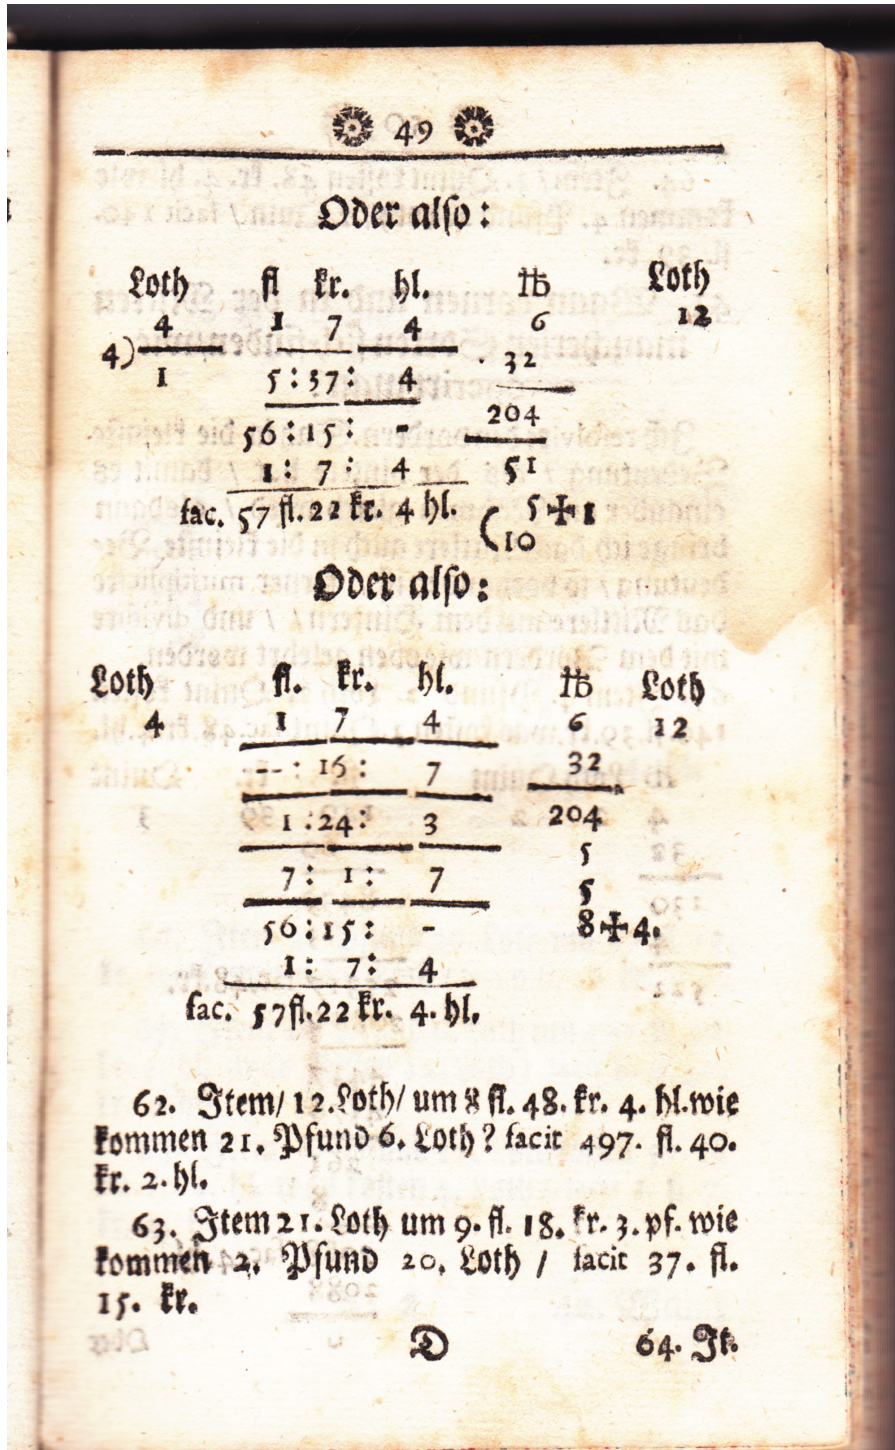 49
Oder also:
Loth fl kr. hl. ℔ Loth
4 1 7 4 6 12
4) 32
1 5:37: 4
204
56:15: -
1: 7: 4 51
fac. 57 fl. 22 kr. 4 hl. 5 ✠ 1
(10
Oder also:
Loth fl. kr. hl. ℔ Loth
4 1 7 4 6 12
--: 16: 7 32
1:24: 3 204
5
7: 1: 7 5
56:15: - 8✠4.
1: 7: 4
fac. 57fl.22 kr. 4. hl.
62. Item/ 12.Loth/ um 8 fl. 48. kr. 4. hl.wie
kommen 21. Pfund 6. Loth? facit 497. fl. 40.
kr. 2. hl.
63. Item 21. Loth um 9. fl. 18. kr. 3. pf. wie
kommen 2. Pfund 20. Loth / facit 37. fl.
15. kr.
D 64. It.